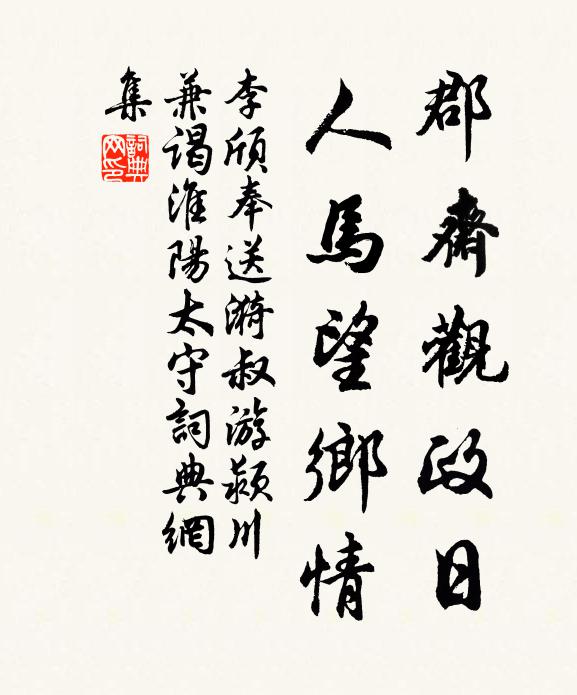 郡齋觀政日
人馬望鄉情
李頎奉送漪叔游潁川
兼謁淮陽太守詞典網
集
詞典
网印